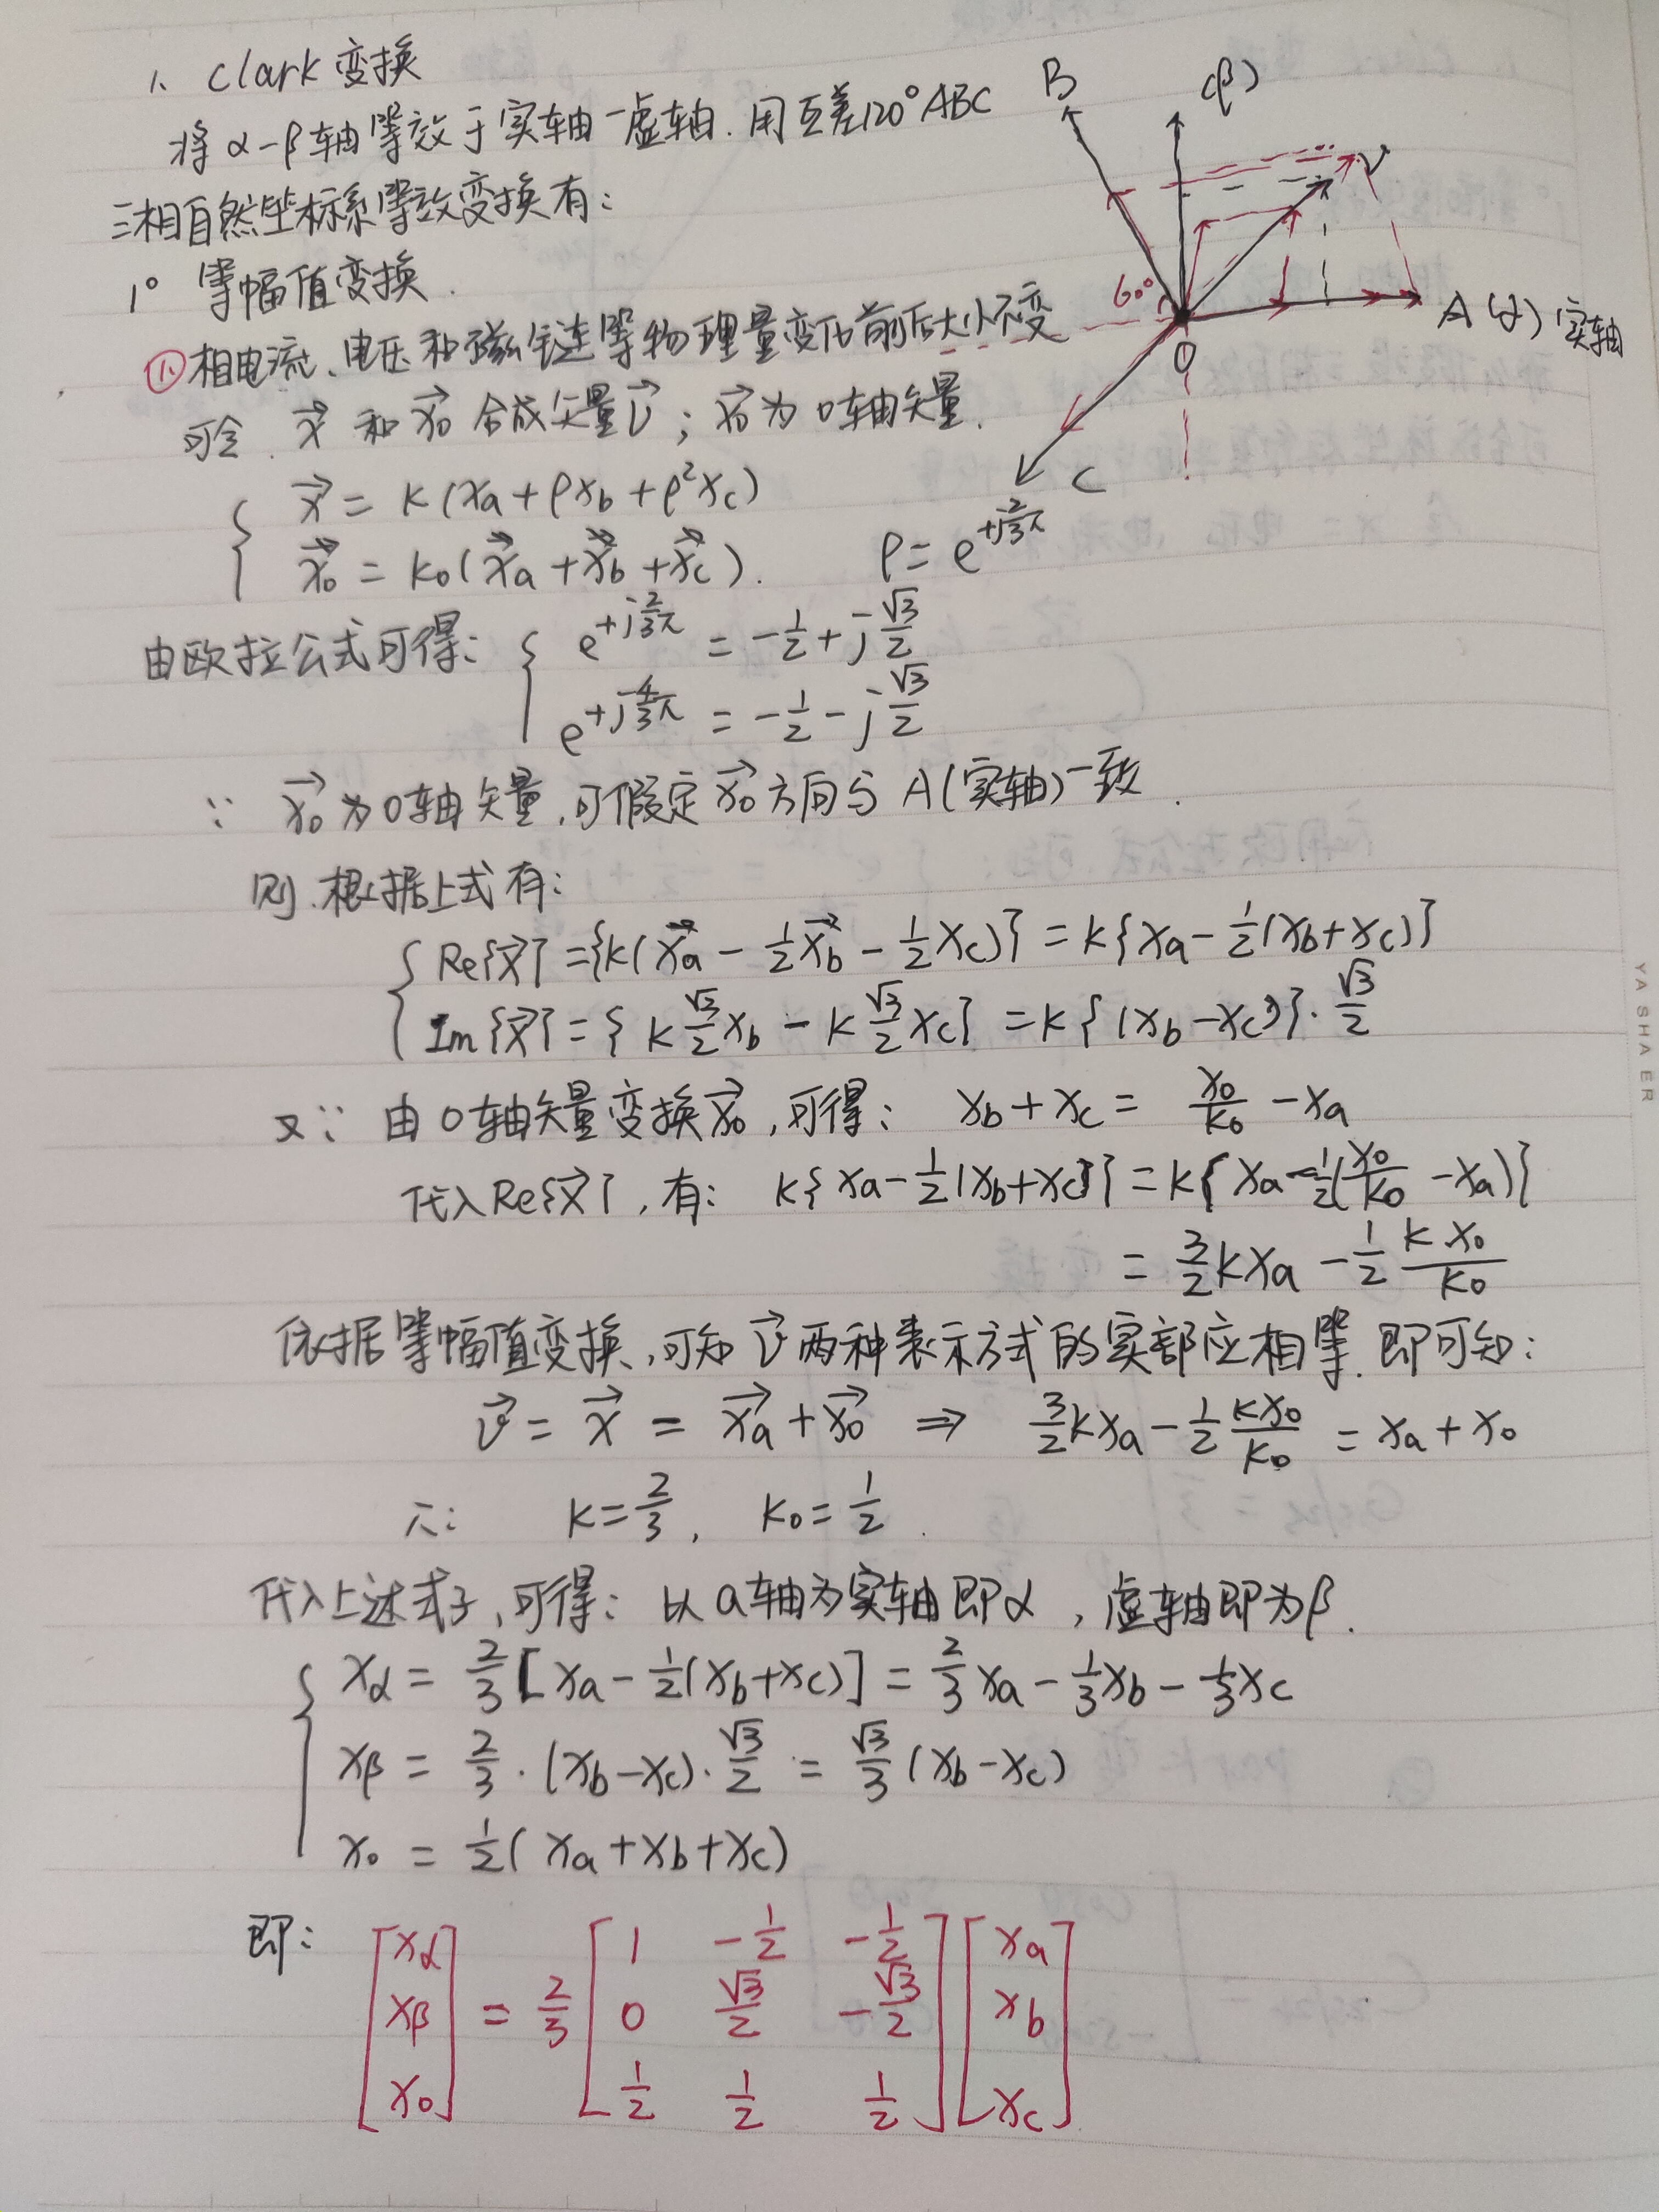 1、Clark 变换
将 α-β 轴等效于实轴-虚轴.用互差120°ABC
三相自然坐标系等效变换有:
1° 等幅值变换.
① 相电流、电压和磁链等物理量变化前后大小不变
可令. x⃗ 和 x⃗₀ 合成矢量 v⃗ ; x⃗₀ 为 0轴矢量.
{ x⃗ = k(xa + ρxb + ρ²xc)
x⃗₀ = k₀(x⃗a + x⃗b + x⃗c). ρ = e^{+j2/3π}
由欧拉公式可得: { e^{+j2/3π} = -1/2 + j√3/2
e^{+j4/3π} = -1/2 - j√3/2
∵ x⃗₀ 为0轴矢量,可假定 x⃗₀ 方向与 A(实轴)一致.
则.根据上式有:
{ Re{x⃗} = {k(x⃗a - 1/2x⃗b - 1/2xc)} = k{xa - 1/2(xb+xc)}
Im{x⃗} = { k√3/2xb - k√3/2xc} = k{(xb-xc)}·√3/2
又∵ 由0轴矢量变换x⃗₀,可得: xb + xc = x₀/k₀ - xa
代入Re{x⃗},有: k{xa - 1/2(xb+xc)} = k{xa - 1/2(x₀/k₀ - xa)}
= 3/2kxa - 1/2 kx₀/k₀
依据等幅值变换,可知 v⃗ 两种表示方式的实部应相等.即可知:
v⃗ = x⃗ = x⃗a + x⃗₀ ⇒ 3/2kxa - 1/2 kx₀/k₀ = xa + x₀
∴: k = 2/3, k₀ = 1/2.
代入上述式子,可得: 以a轴为实轴即α,虚轴即为β.
{ xα = 2/3[xa - 1/2(xb+xc)] = 2/3xa - 1/3xb - 1/3xc
xβ = 2/3·(xb-xc)·√3/2 = √3/3(xb-xc)
x₀ = 1/2(xa + xb + xc)
即: [xα xβ x₀] = 2/3 [1 -1/2 -1/2
0 √3/2 -√3/2
1/2 1/2 1/2] [xa xb xc]
B
(β)
V
60°
A(α) 实轴
O
C
YASHAER